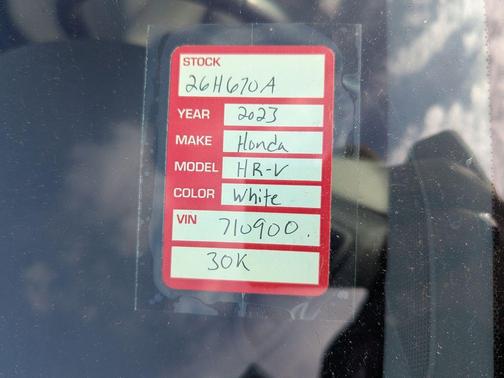 STOCK
26H670A
YEAR 2023
MAKE Honda
MODEL HR-V
COLOR White
VIN 710900.
30K